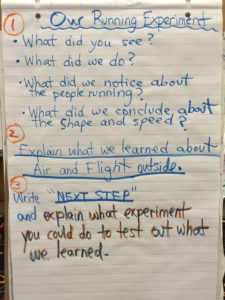 1 Our Running Experiment
• What did you see?
• What did we do?
• What did we notice about
the people running?
• What did we conclude about
the shape and speed?
2
Explain what we learned about
Air and Flight outside.
3
Write "NEXT STEP"
and explain what experiment
you could do to test out what
we learned.